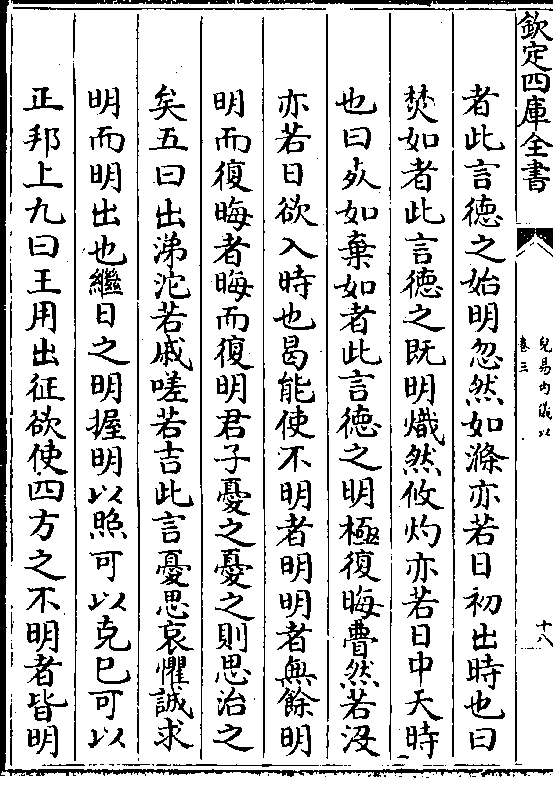 欽定四庫全書
兒易內儀以
卷三
十八
者此言德之始明忽然如滌亦若日初出時也曰
焚如者此言德之既明熾然攸灼亦若日中天時
也曰死如棄如者此言德之明極復晦瞢然若沒
亦若日欲入時也曷能使不明者明明者無餘明
明而復晦者晦而復明君子憂之憂之則思治之
矣五曰出涕沱若戚嗟若吉此言憂思哀懼誠求
明而明出也繼日之明握明以照可以克已可以
正邦上九曰王用出征欲使四方之不明者皆明